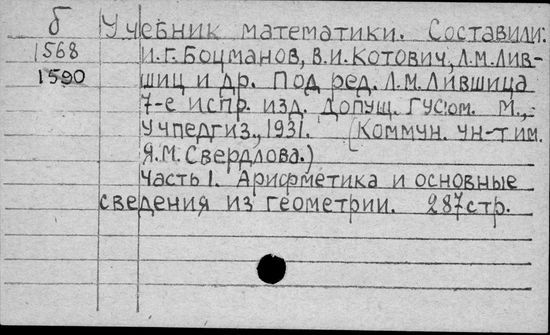 б Учебник математики. Составили:
1568 И.Г. Боцманов, В.И. Котович, Л.М. Лив-
1590 шиц и др. Под ред. Л.М. Лившица
7-е испр. изд. Допущ. ГУСом. М.,
Учпедгиз., 1931. (Коммун. ун-т им.
Я.М. Свердлова.)
Часть 1. Арифметика и основные
сведения из геометрии. 287 стр.